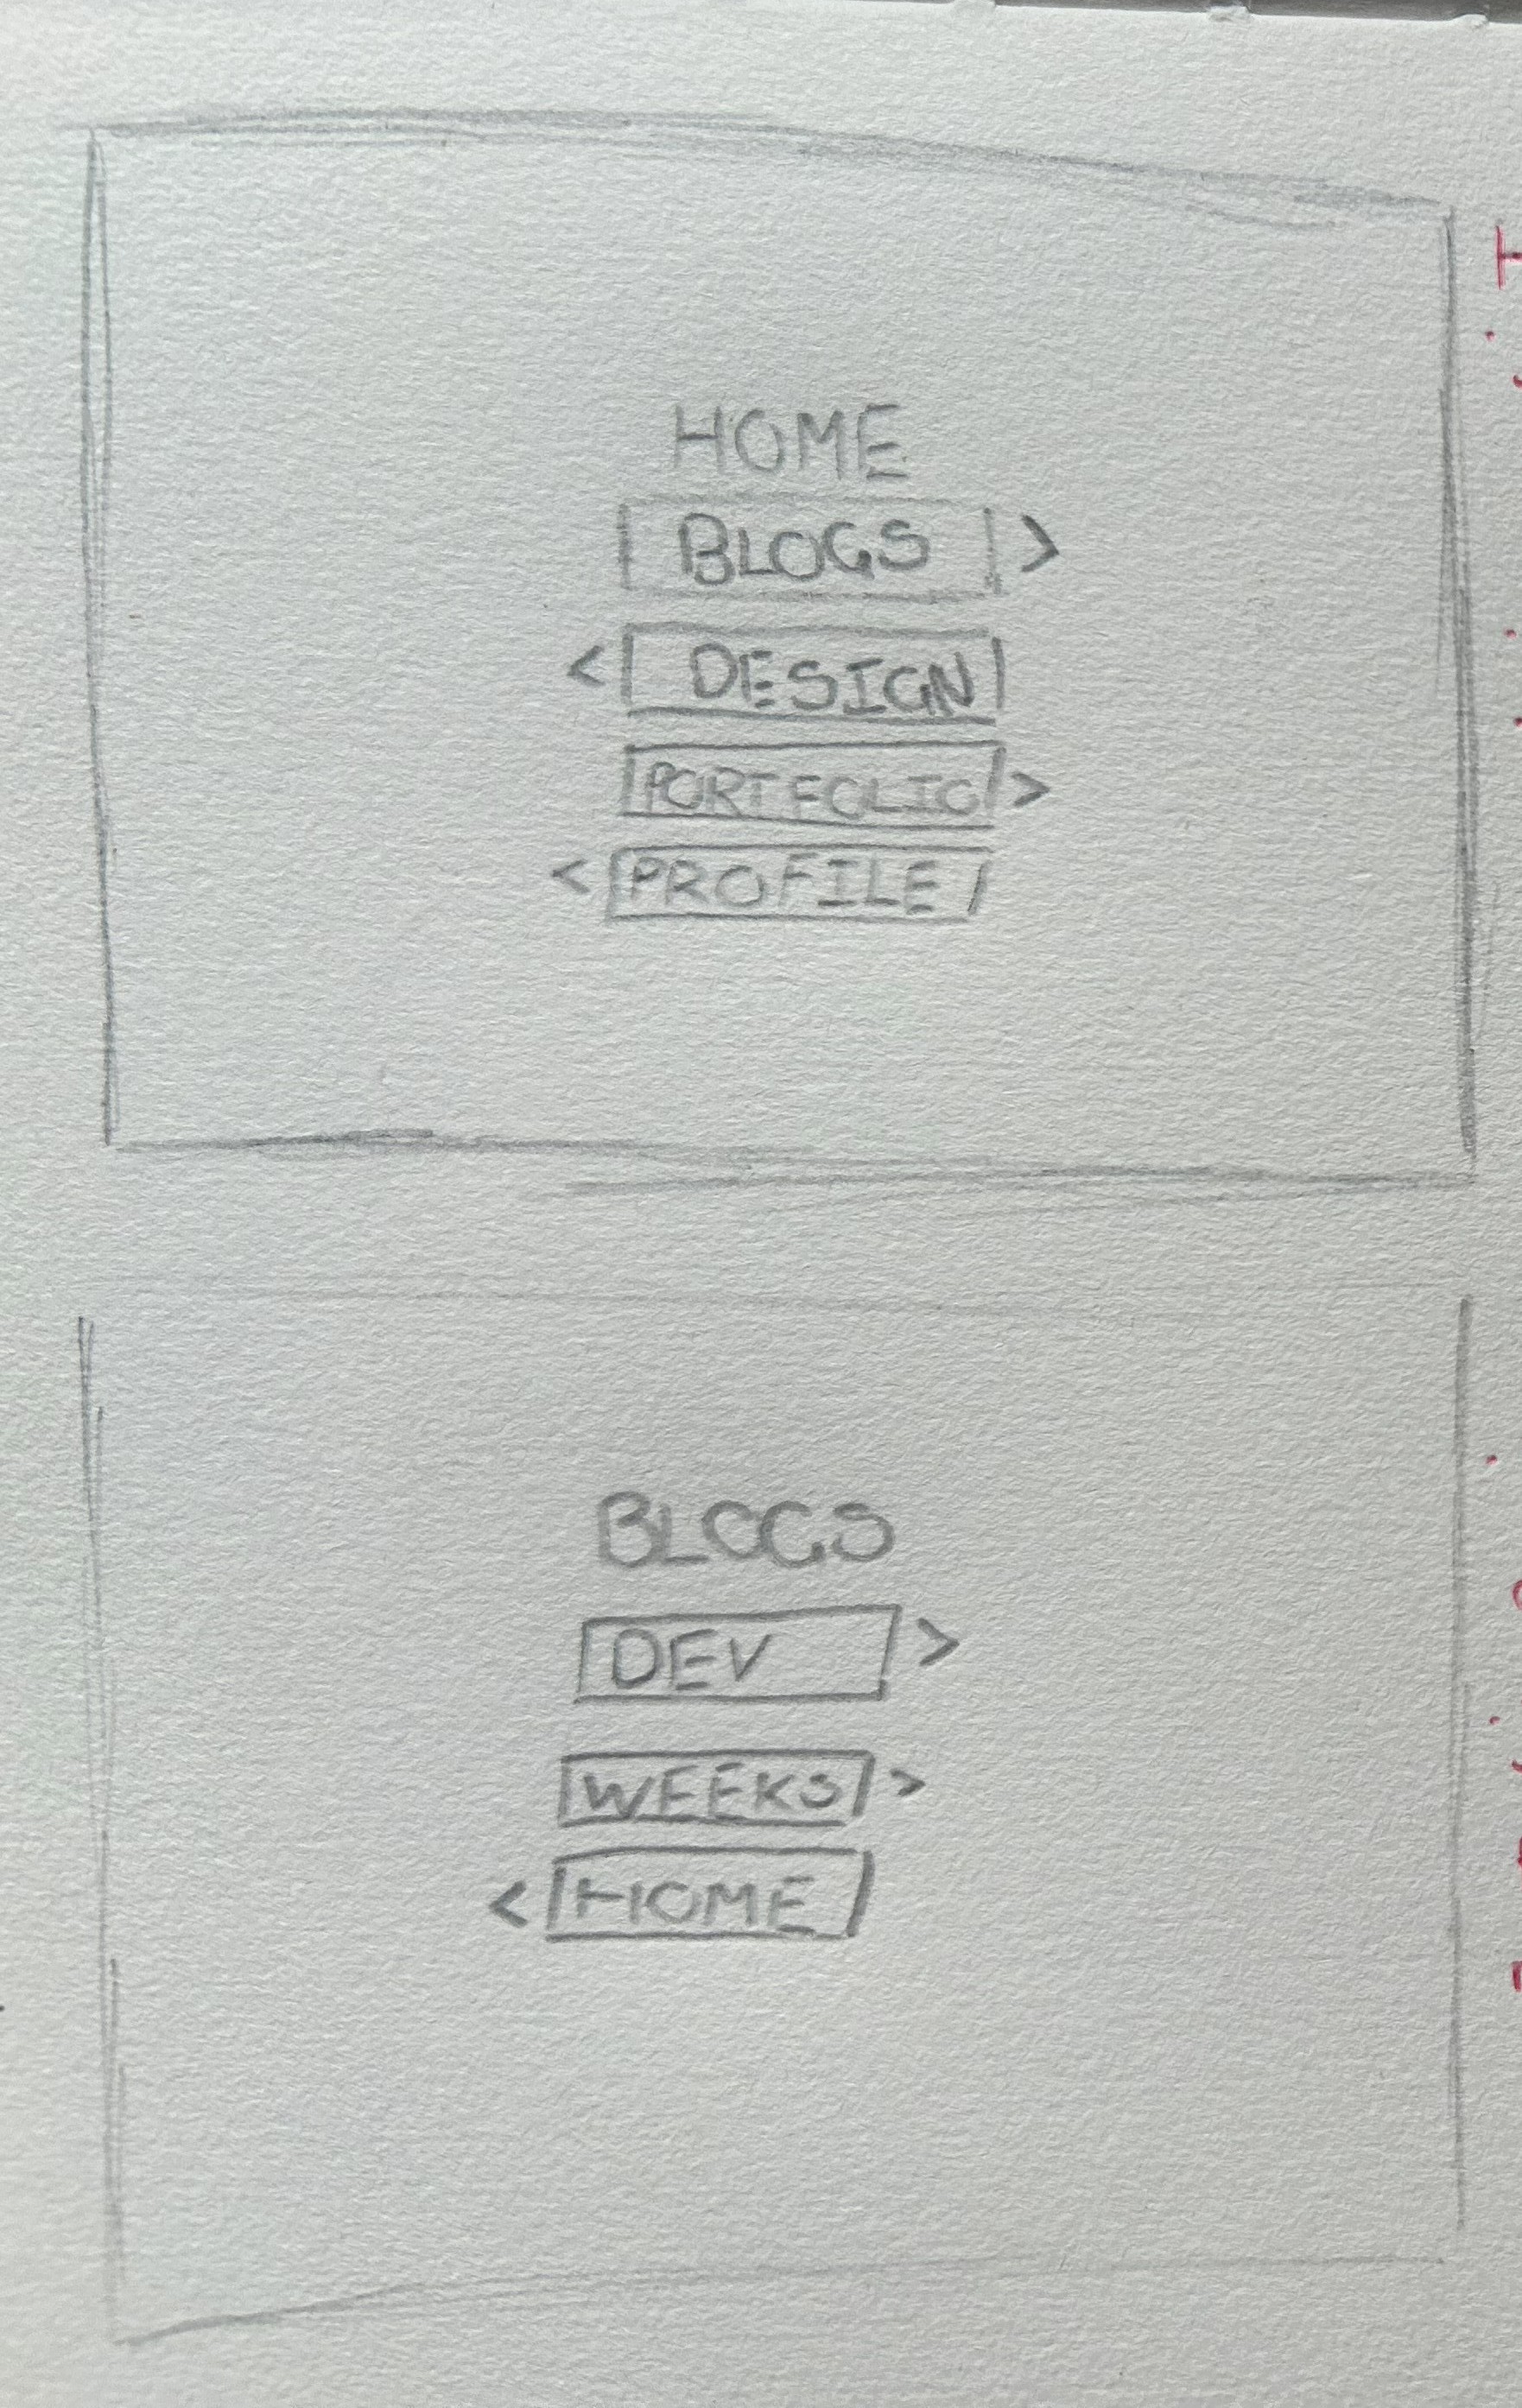 HOME
BLOGS >
< DESIGN
PORTFOLIO >
< PROFILE
BLOGS
DEV >
WEEKS >
< HOME